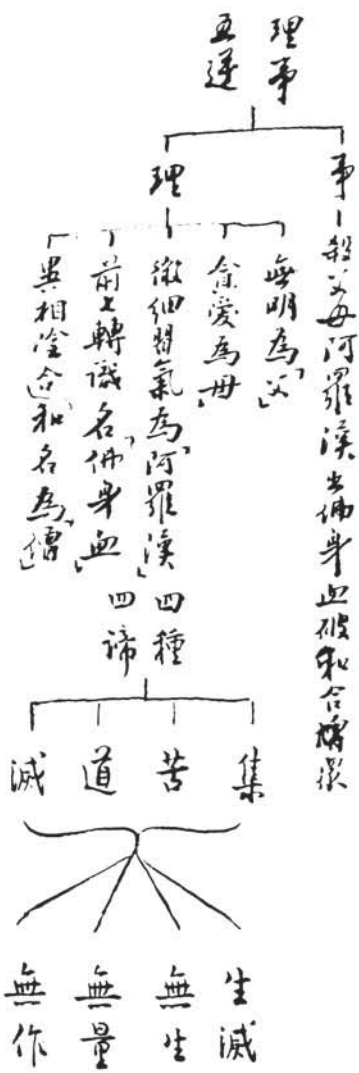 理事
五逆
事－殺父母阿羅漢出佛身血破和合僧眾
理
無明為「父」
貪愛為「母」
微細習氣為「阿羅漢」
前七轉識名「佛身血」
異相陰合和名為「僧」
四種
四諦
集
苦
道
滅
生滅
無生
無量
無作